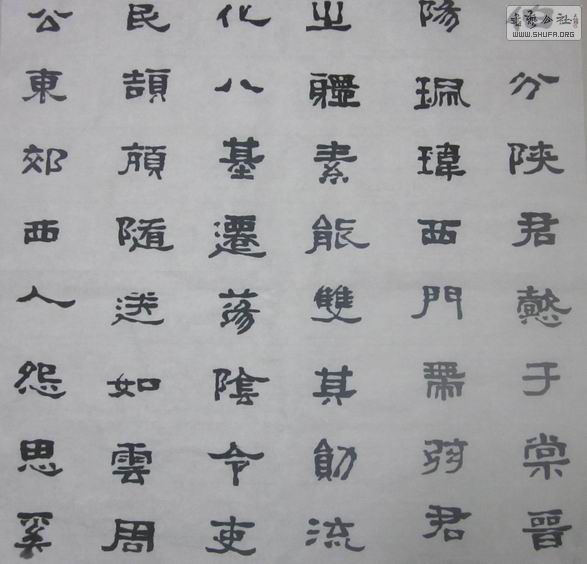 分陝君懿于棠晉
陽珮瑋西門帶弦君
之體素能雙其勛流
化八基遷蕩陰令吏
民頡頏隨送如雲周
公東郊西人怨思奚
書藝公社
WWW.SHUFA.ORG